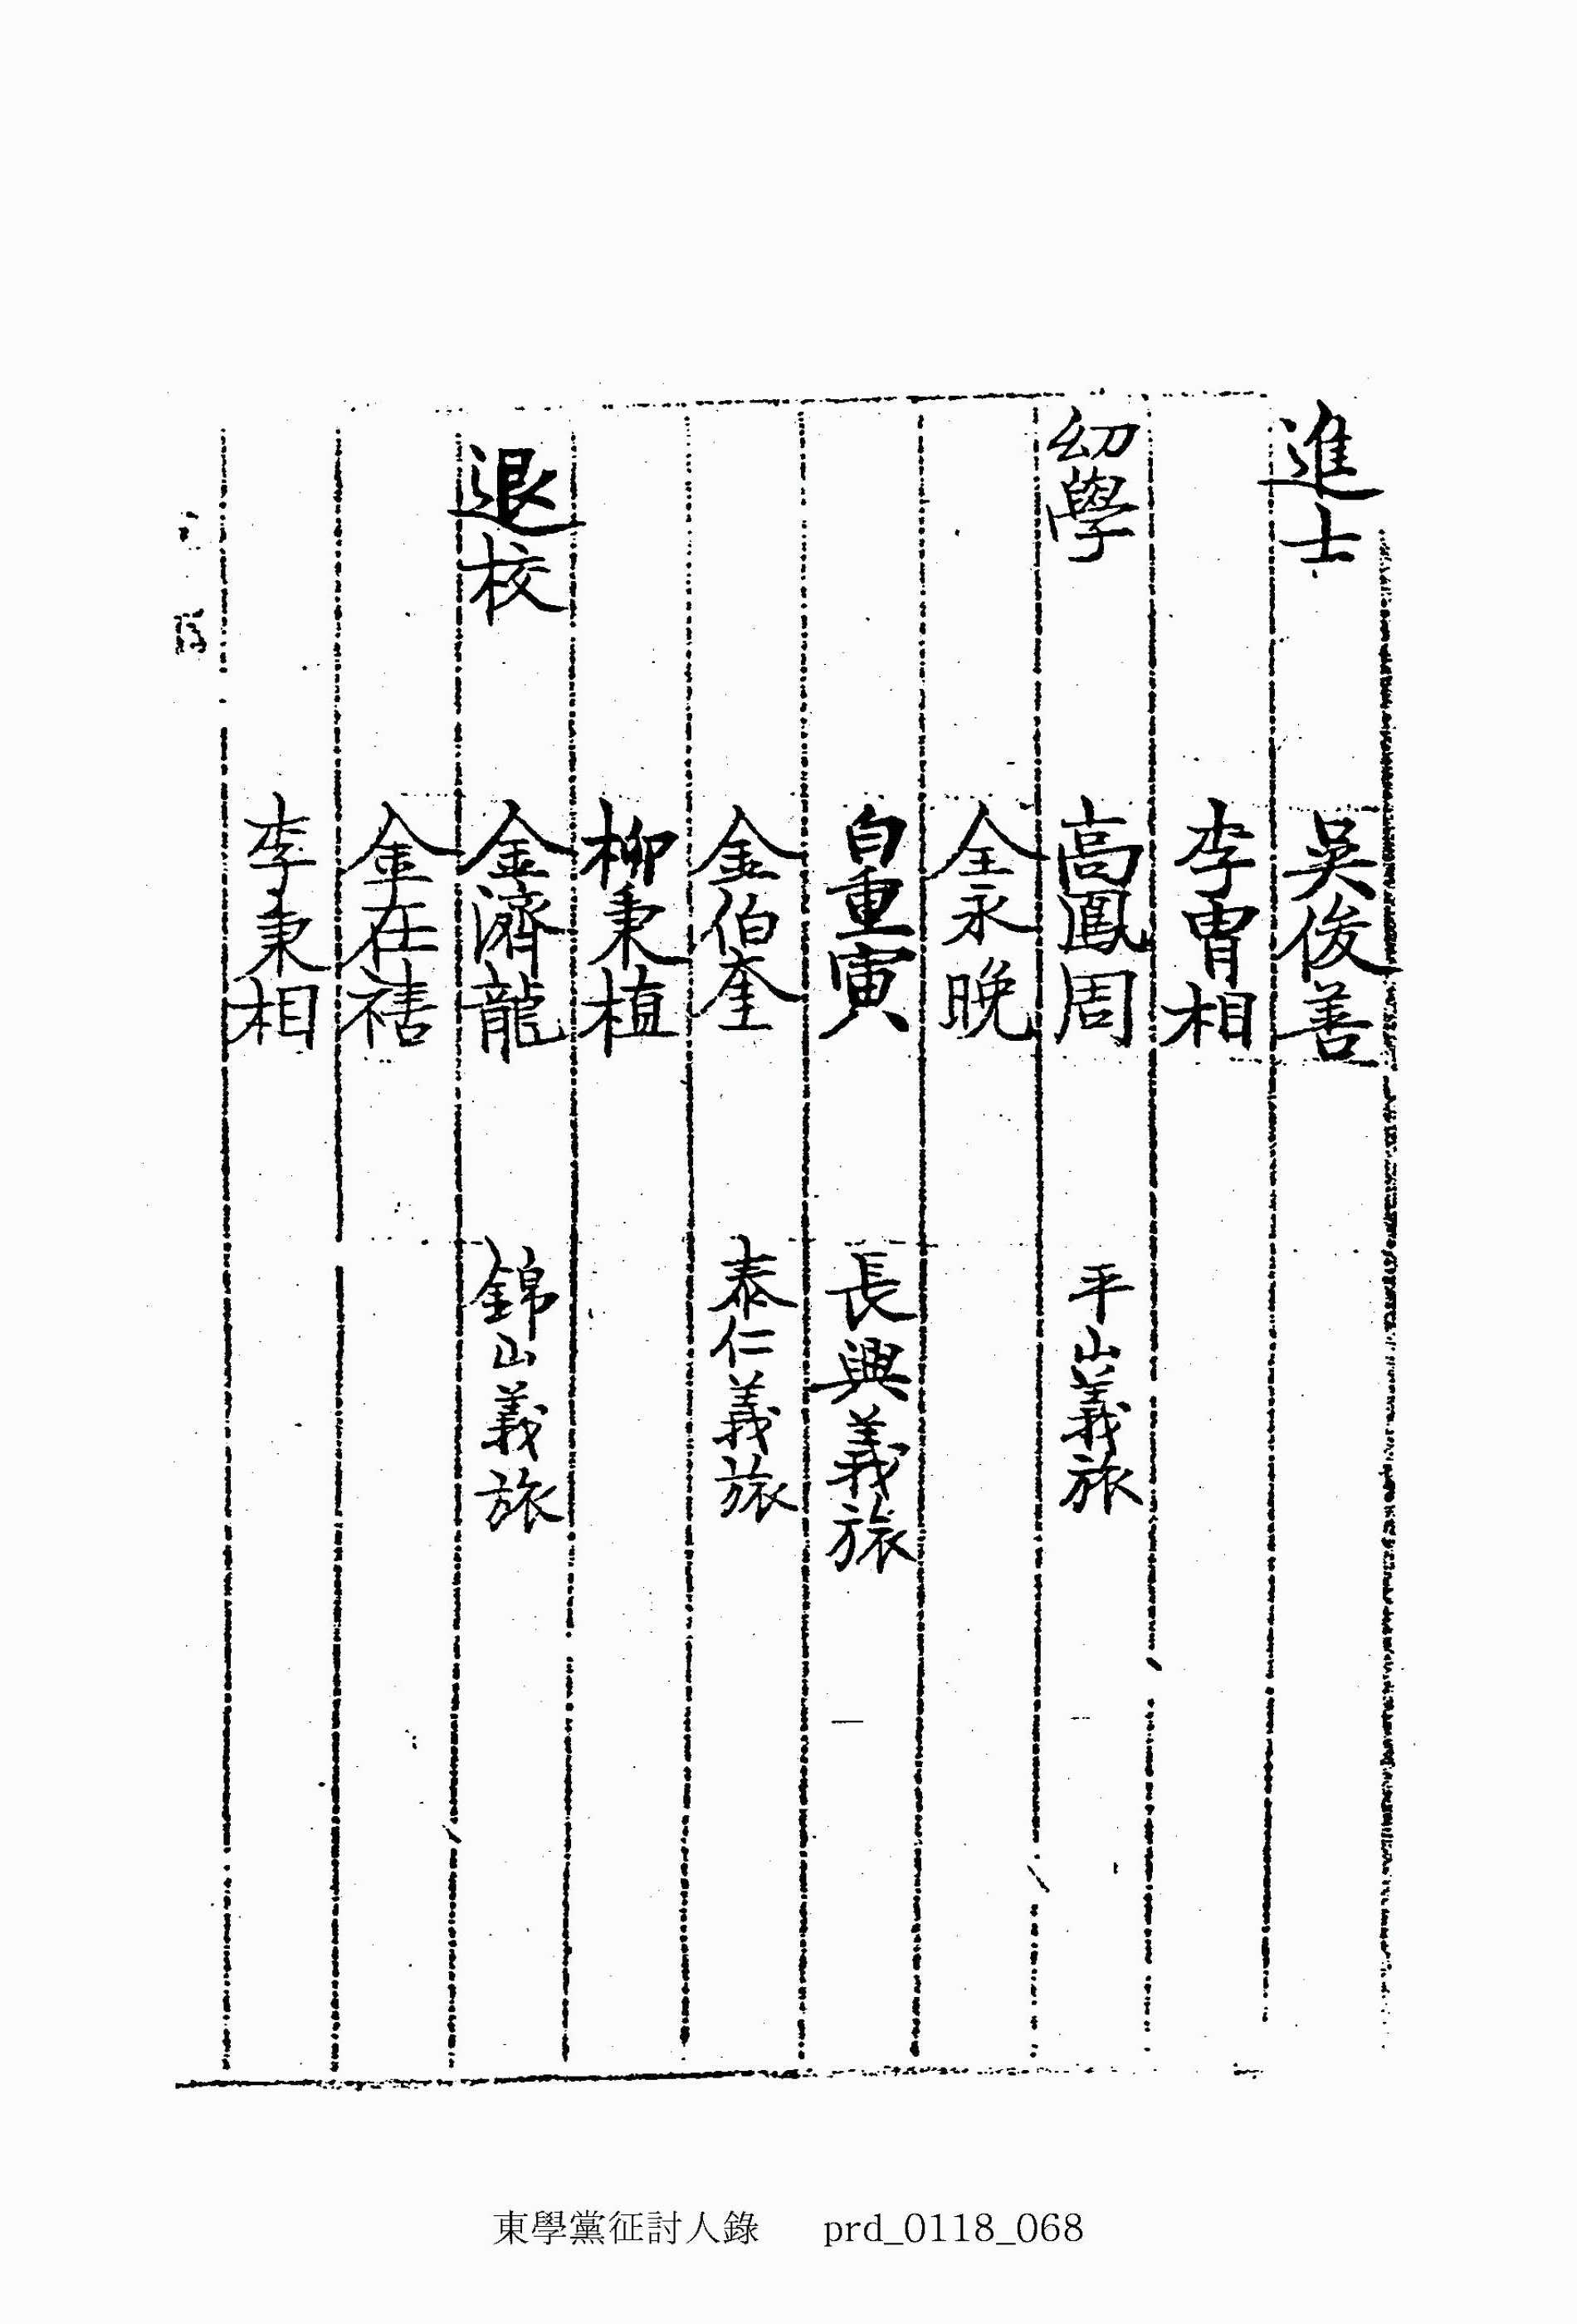 進士 吳俊善
李胄相
幼學 高鳳周 平山義旅
全永晩
白重寅 長興義旅
金伯奎 泰仁義旅
柳秉植
退校 金濟龍 錦山義旅
金在禧
李秉相
東學黨征討人錄 prd_0118_068